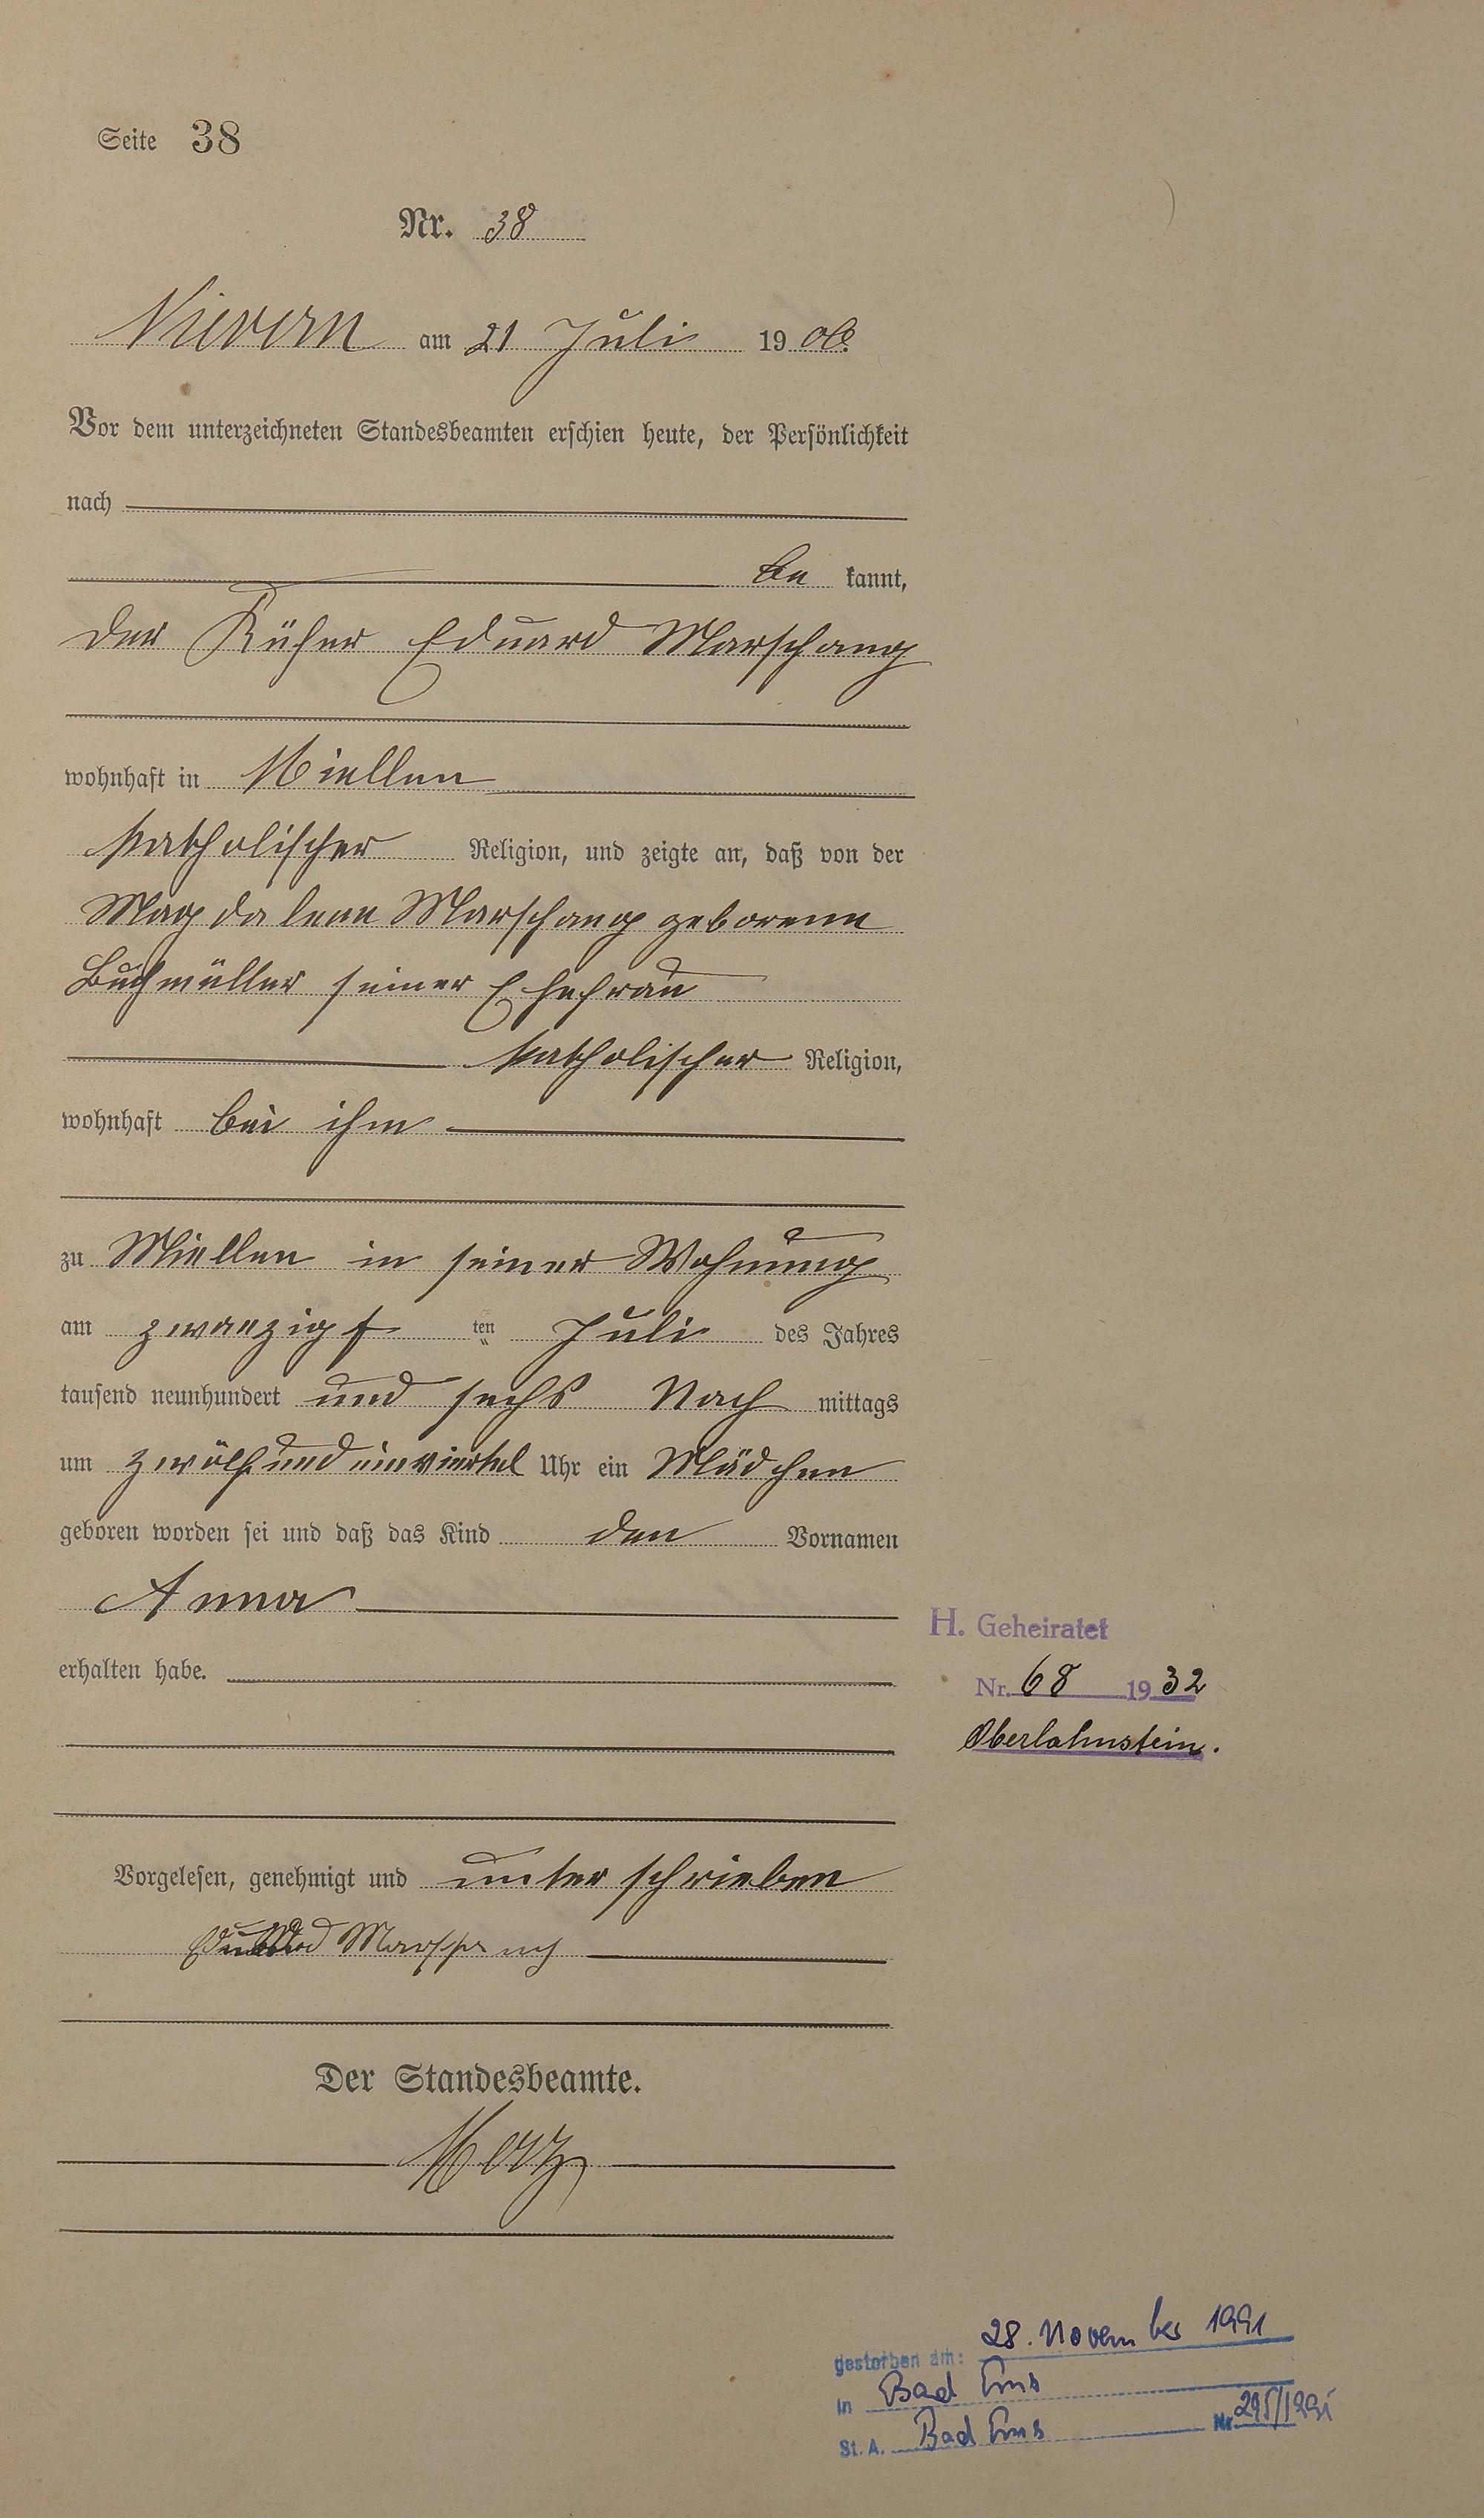 Seite 38
Nr. 38
Nievern am 21 Juli 1906.
Vor dem unterzeichneten Standesbeamten erschien heute, der Persönlichkeit
nach
be kannt,
der Küfer Eduard Marschang
wohnhaft in Miellen
katholischer Religion, und zeigte an, daß von der
Magdalena Marschang geborene
Buchmüller seiner Ehefrau
katholischer Religion,
wohnhaft bei ihm
zu Miellen in seiner Wohnung
am zwanzigs ten Juli des Jahres
tausend neunhundert und sechs Nach mittags
um zwölf und einviertel Uhr ein Mädchen
geboren worden sei und daß das Kind den Vornamen
Anna
erhalten habe.
H. Geheiratet
Nr. 68 1932
Oberlahnstein.
Vorgelesen, genehmigt und unterschrieben
Eduard Marschang
Der Standesbeamte.
gestorben am: 28. November 1991
in Bad Ems
St. A. Bad Ems Nr. 295/1991